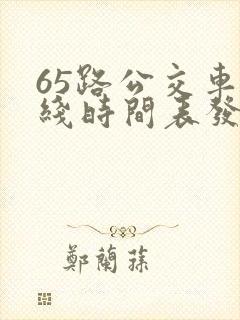 65路公交車
綫時間表發
鄭蘭蓀